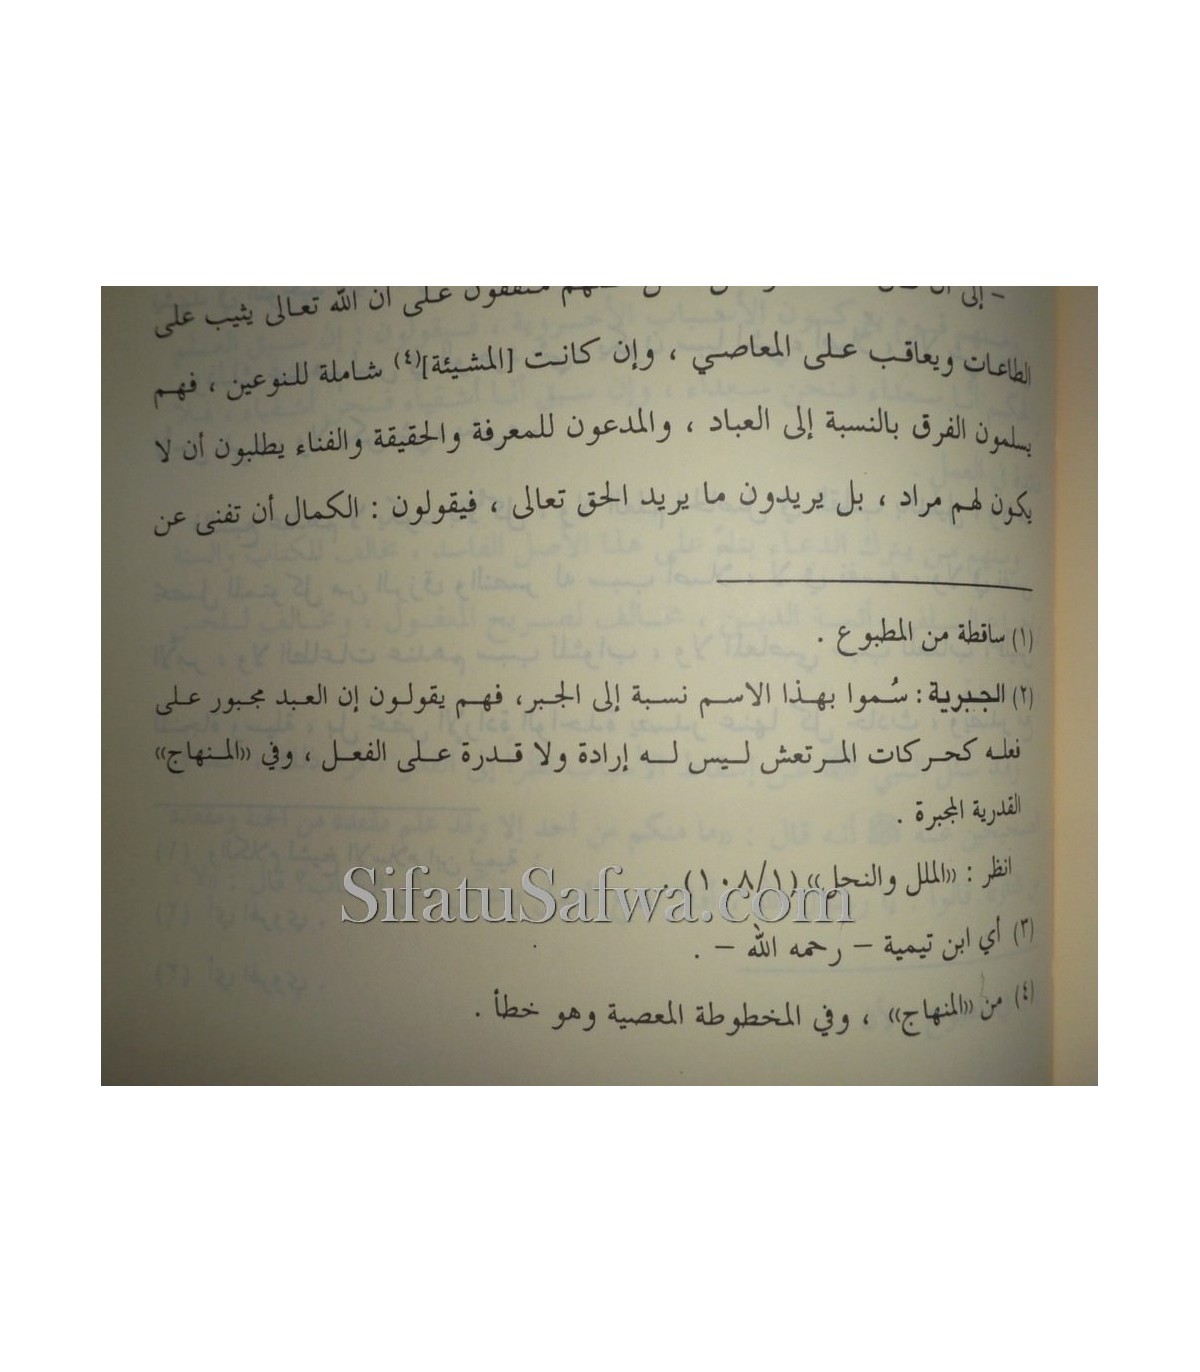 – إلى أن متفقون على أن الله تعالى يثيب على
الطاعات ويعاقب على المعاصي ، وإن كانت [المشيئة](٤) شاملة للنوعين ، فهم
يسلمون الفرق بالنسبة إلى العباد ، والمدعون للمعرفة والحقيقة والفناء يطلبون أن لا
يكون لهم مراد ، بل يريدون ما يريد الحق تعالى ، فيقولون : الكمال أن تفنى عن
(١) ساقطة من المطبوع .
(٢) الجبرية : سُموا بهذا الاسم نسبة إلى الجبر، فهم يقولون إن العبد مجبور على
فعله كحركات المرتعش ليس له إرادة ولا قدرة على الفعل ، وفي «المنهاج»
القدرية المجبرة .
انظر : «الملل والنحل» (١٠٨/١) .
SifatuSafwa.com
(٣) أي ابن تيمية – رحمه الله – .
(٤) من «المنهاج» ، وفي المخطوطة المعصية وهو خطأ .